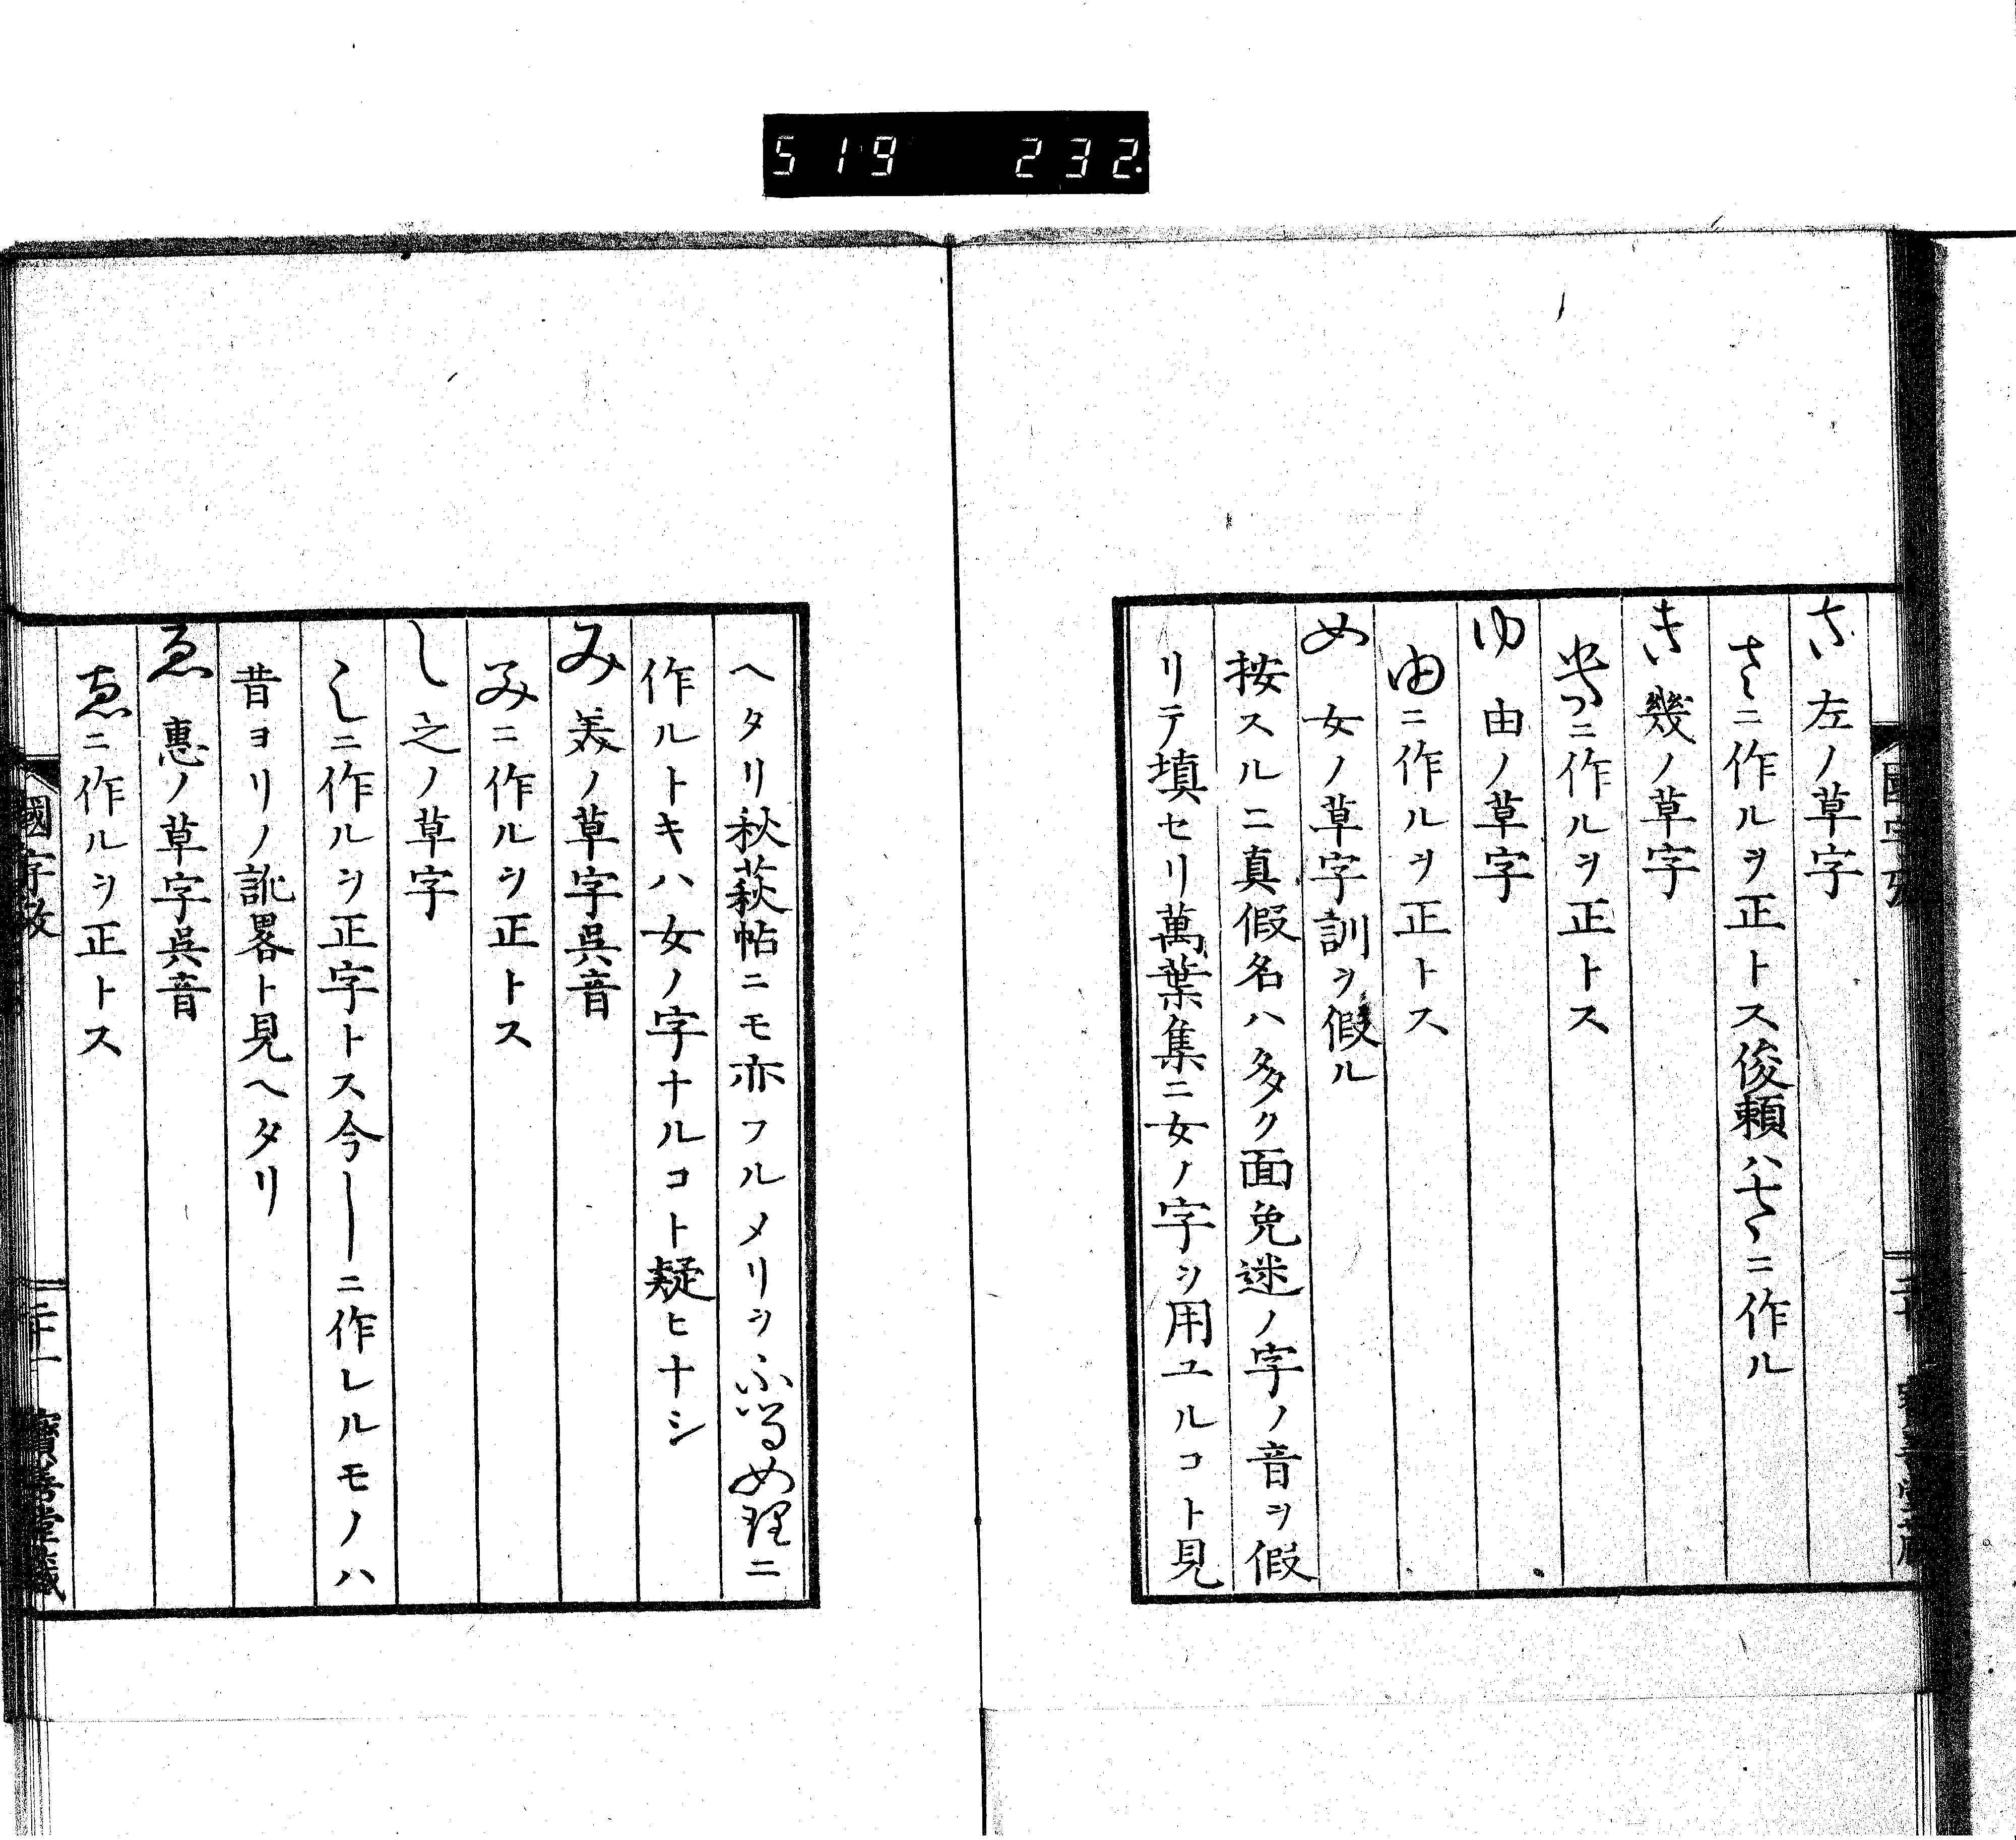 519 232.
さ 左ノ草字
さニ作ルヲ正トス俊頼ハ七ニ作ル
き 幾ノ草字
ニ作ルヲ正トス
ゆ 由ノ草字
ゆニ作ルヲ正トス
め 女ノ草字訓ヲ假ル
按スルニ真假名ハ多ク面免迷ノ字ノ音ヲ假
リテ填セリ萬葉集ニ女ノ字ヲ用ユルコト見
ヘタリ秋萩帖ニモ亦フルメリヲふるめ理ニ
作ルトキハ女ノ字ナルコト疑ヒナシ
み 美ノ草字呉音
みニ作ルヲ正トス
し 之ノ草字
しニ作ルヲ正字トス今しニ作レルモノハ
昔ヨリノ訛畧ト見ヘタリ
ゑ 惠ノ草字呉音
ゑニ作ルヲ正トス
國字攷 二十一 寶善堂藏